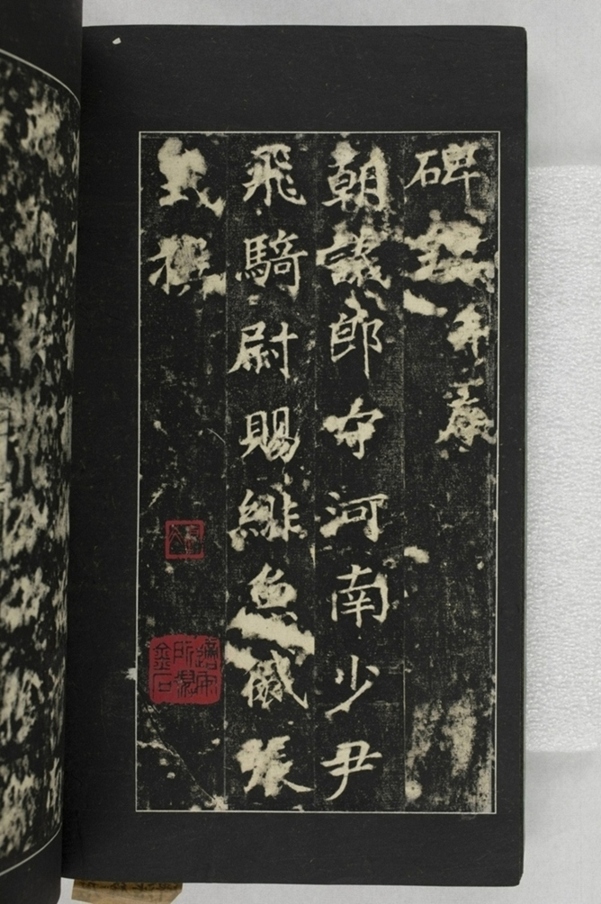 碑銘并序
朝議郎守河南少尹
飛騎尉賜緋魚袋張
式撰
所
金石